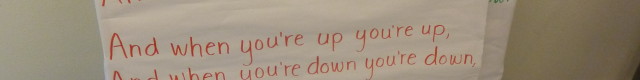 And when you're up you're up,
And when you're down you're down,